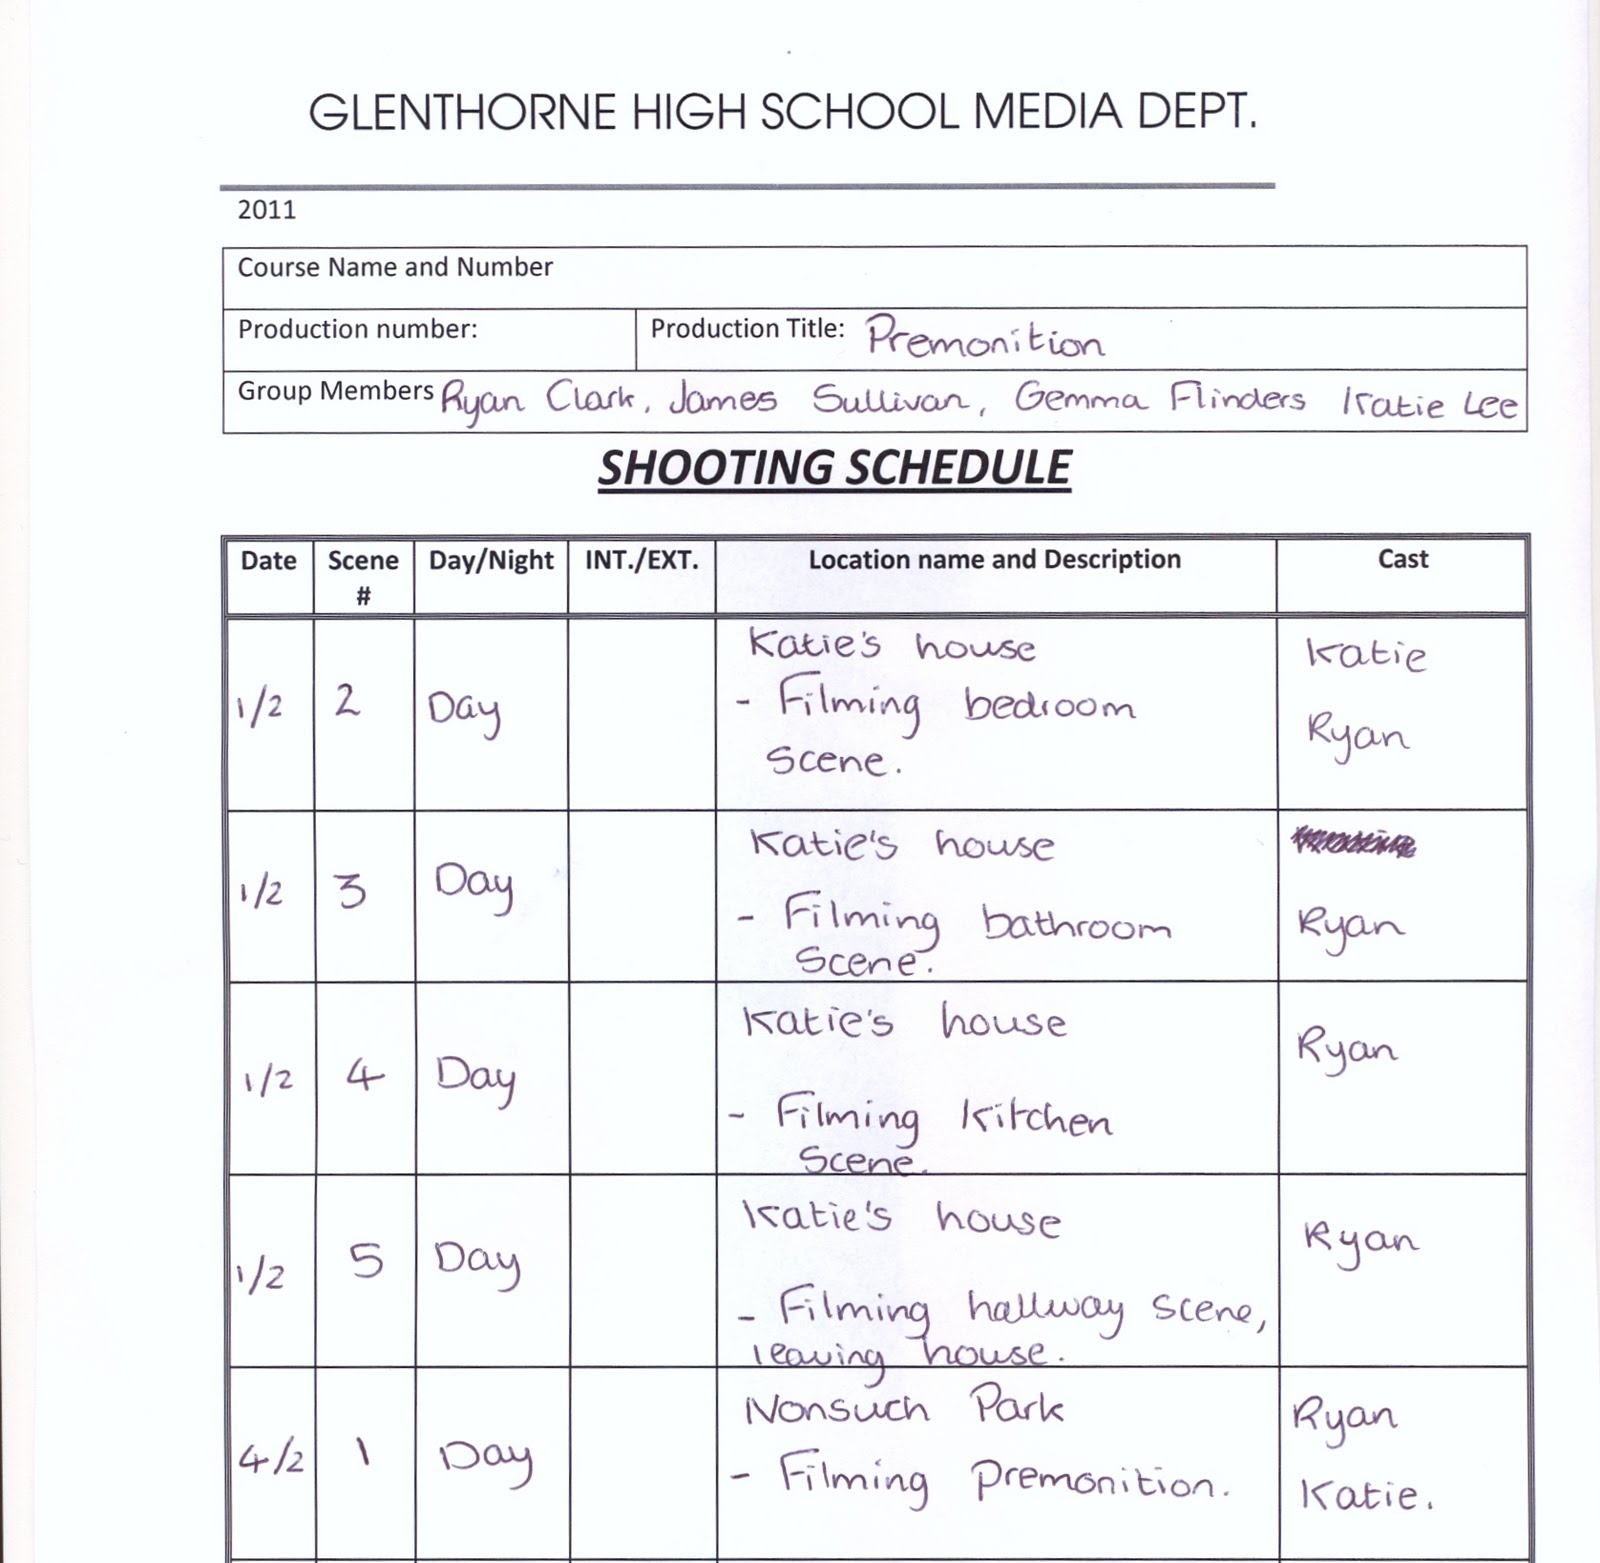 GLENTHORNE HIGH SCHOOL MEDIA DEPT.
2011
Course Name and Number
Production number: Production Title: Premonition
Group Members Ryan Clark, James Sullivan, Gemma Flinders Katie Lee
SHOOTING SCHEDULE
Date Scene # Day/Night INT./EXT. Location name and Description Cast
1/2 2 Day
Katie's house
- Filming bedroom
scene.
Katie
Ryan
1/2 3 Day
Katie's house
- Filming bathroom
scene.
Ryan
1/2 4 Day
Katie's house
- Filming kitchen
scene.
Ryan
1/2 5 Day
Katie's house
- Filming hallway scene,
leaving house.
Ryan
4/2 1 Day
Nonsuch Park
- Filming premonition.
Ryan
Katie.